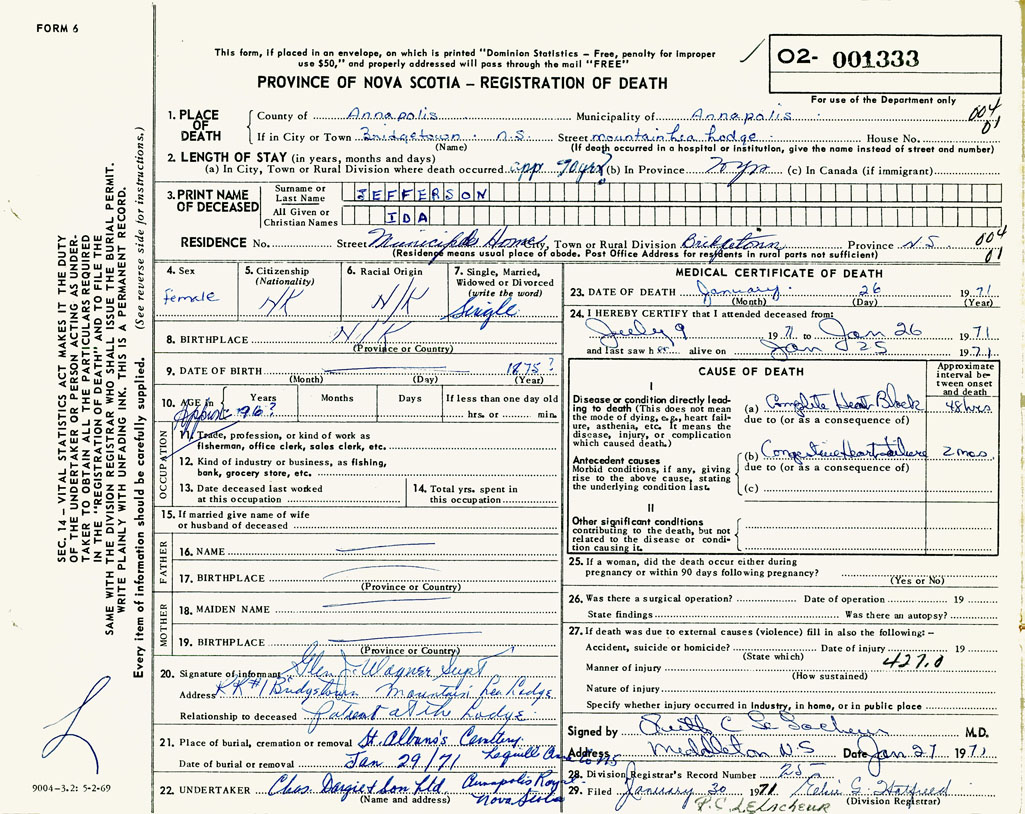 FORM 6
This form, if placed in an envelope, on which is printed "Dominion Statistics – Free, penalty for improper
use $50," and properly addressed will pass through the mail "FREE"
PROVINCE OF NOVA SCOTIA – REGISTRATION OF DEATH
02- 001333
For use of the Department only
SEC. 14 – VITAL STATISTICS ACT MAKES IT THE DUTY
OF THE UNDERTAKER OR PERSON ACTING AS UNDER-
TAKER TO OBTAIN ALL THE PARTICULARS REQUIRED
IN THE "REGISTRATION OF DEATH" AND TO FILE THE
SAME WITH THE DIVISION REGISTRAR WHO SHALL ISSUE THE BURIAL PERMIT.
WRITE PLAINLY WITH UNFADING INK. THIS IS A PERMANENT RECORD.
Every item of information should be carefully supplied. (See reverse side for instructions.)
1. PLACE OF DEATH
County of Annapolis Municipality of Annapolis 004
01
If in City or Town Bridgetown N.S. Street mountain Lea Lodge House No.
(Name) (If death occurred in a hospital or institution, give the name instead of street and number)
2. LENGTH OF STAY (in years, months and days)
(a) In City, Town or Rural Division where death occurred app 90yrs? (b) In Province (c) In Canada (if immigrant)
3. PRINT NAME OF DECEASED
Surname or Last Name JEFFERSON
All Given or Christian Names IDA
RESIDENCE No. Street Municipal Home City, Town or Rural Division Bridgetown Province N.S. 004
(Residence means usual place of abode. Post Office Address for residents in rural parts not sufficient) 01
4. Sex female
5. Citizenship (Nationality) N/K
6. Racial Origin N/K
7. Single, Married, Widowed or Divorced (write the word) Single
8. BIRTHPLACE N/K
(Province or Country)
9. DATE OF BIRTH 1875?
(Month) (Day) (Year)
10. AGE in Years Months Days If less than one day old
Approx 96? hrs. or min.
OCCUPATION
11. Trade, profession, or kind of work as
fisherman, office clerk, sales clerk, etc.
12. Kind of industry or business, as fishing,
bank, grocery store, etc.
13. Date deceased last worked
at this occupation
14. Total yrs. spent in
this occupation
15. If married give name of wife
or husband of deceased
FATHER
16. NAME
17. BIRTHPLACE
(Province or Country)
MOTHER
18. MAIDEN NAME
19. BIRTHPLACE
(Province or Country)
20. Signature of informant Glen J. Wagner Supt
Address RR#1 Bridgetown Mountain Lea Lodge
Relationship to deceased patient at the Lodge
21. Place of burial, cremation or removal St. Albans's Cemetery
Date of burial or removal Jan. 29/71 Lequille
22. UNDERTAKER Chas. Dargie & Son Ltd Annapolis Royal
(Name and address) Nova Scotia
MEDICAL CERTIFICATE OF DEATH
23. DATE OF DEATH January 26 1971
(Month) (Day) (Year)
24. I HEREBY CERTIFY that I attended deceased from:
July 9 1971 to Jan 26 1971
and last saw her alive on Jan 25 1971
CAUSE OF DEATH
Approximate interval between onset and death
I
Disease or condition directly leading to death (This does not mean
the mode of dying, e.g., heart failure, asthenia, etc. It means the
disease, injury, or complication which caused death.)
(a) Complete Heart Block 48 hrs
due to (or as a consequence of)
Antecedent causes
Morbid conditions, if any, giving
rise to the above cause, stating
the underlying condition last.
(b) Congestive Heart Failure 2 mos
due to (or as a consequence of)
(c)
II
Other significant conditions
contributing to the death, but not
related to the disease or condition causing it.
25. If a woman, did the death occur either during
pregnancy or within 90 days following pregnancy?
(Yes or No)
26. Was there a surgical operation? Date of operation 19
State findings Was there an autopsy?
27. If death was due to external causes (violence) fill in also the following:–
Accident, suicide or homicide? Date of injury 19
(State which) 427.0
Manner of injury
(How sustained)
Nature of injury
Specify whether injury occurred in Industry, in home, or in public place
Signed by C Le Lacheur M.D.
Address Middleton N.S Date Jan 27 1971
28. Division Registrar's Record Number 25
29. Filed January 30 1971 Hatfield
(Division Registrar)
P.C. LELACHEUR
9004-3.2: 5-2-69